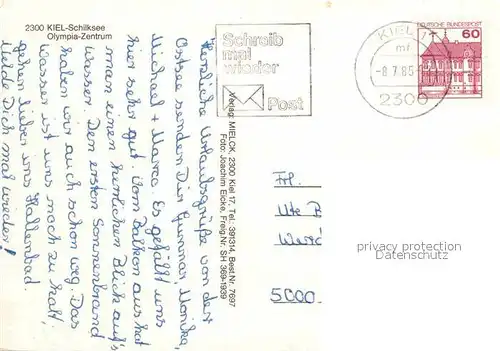 2300 KIEL-Schilksee
Olympia-Zentrum
Herzliche Urlaubsgrüße von der
Ostsee senden Dir Gunnar, Monika,
Michael + Marco. Es gefällt uns
hier sehr gut. Vom Balkon aus hat
man einen herrlichen Blick auf's
Wasser. Den ersten Sonnenbrand
haben wir auch schon weg. Das
Wasser ist uns noch zu kalt,
gehen lieber ins Hallenbad.
Melde Dich mal wieder!
Verlag: MIELCK, 2300 Kiel 17, Tel.: 391314, Best.Nr. 7697
Foto: Joachim Eicke, Freig.Nr. SH 369-1939
Schreib
mal
wieder
Post
KIEL 1
mf
-8.7.85-
2300
DEUTSCHE BUNDESPOST
60
Frl.
Ute
5000
privacy protection
Datenschutz